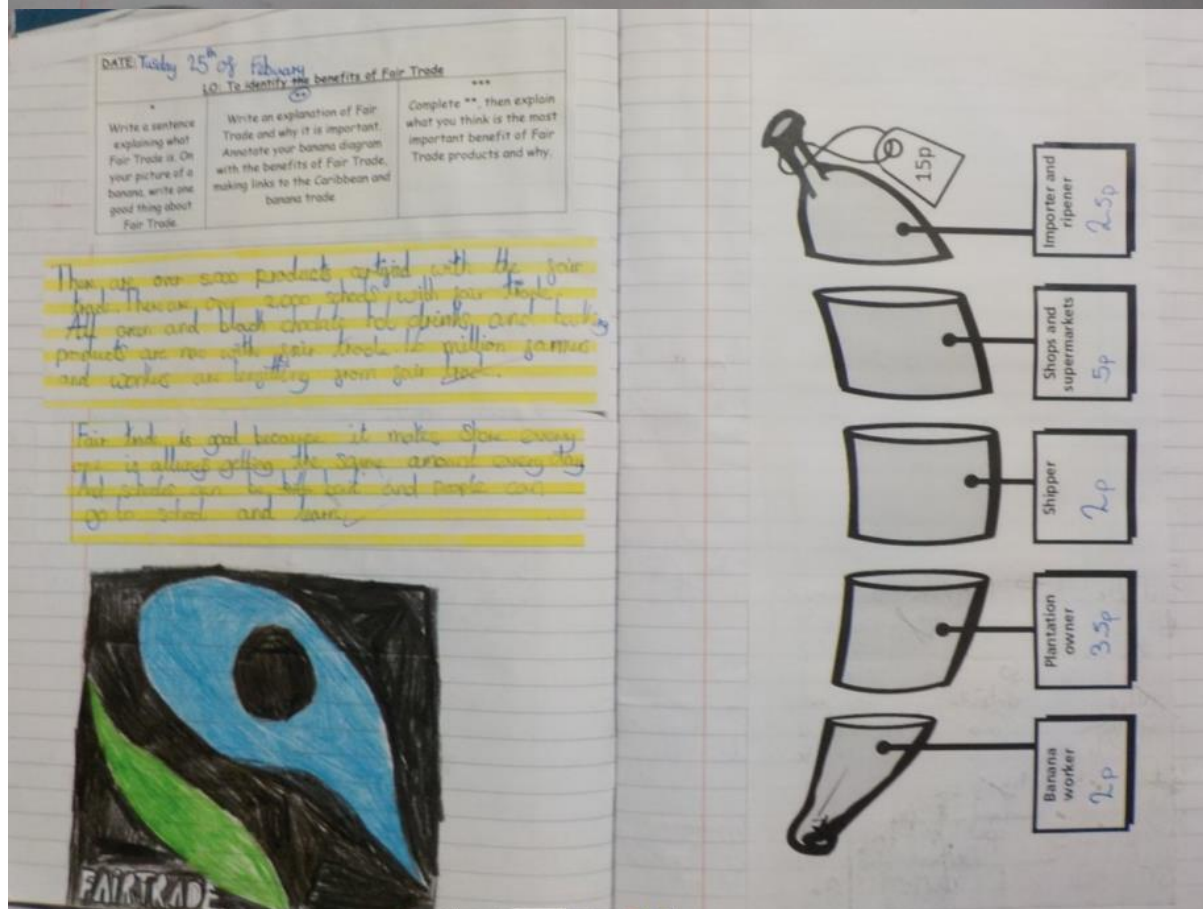 DATE: Tuesday 25th of Febuary
LO: To identify the benefits of Fair Trade
*
Write a sentence
explaining what
Fair Trade is. On
your picture of a
banana, write one
good thing about
Fair Trade.
**
Write an explanation of Fair
Trade and why it is important.
Annotate your banana diagram
with the benefits of Fair Trade,
making links to the Caribbean and
banana trade
***
Complete **, then explain
what you think is the most
important benefit of Fair
Trade products and why.
There are over 5000 products with the fair
trade. There are over 2,000 schools with fair
All green and black hot drinks and
products are now with fair trade. million
and workers are from fair trade.
Fair trade is good because it makes every
one is getting the same amount every day
And schools can be and people can
go to school and learn
FAIRTRADE
15p
Importer and
ripener
2.5p
Shops and
supermarkets
5p
Shipper
2p
Plantation
owner
3.5p
Banana
worker
2p